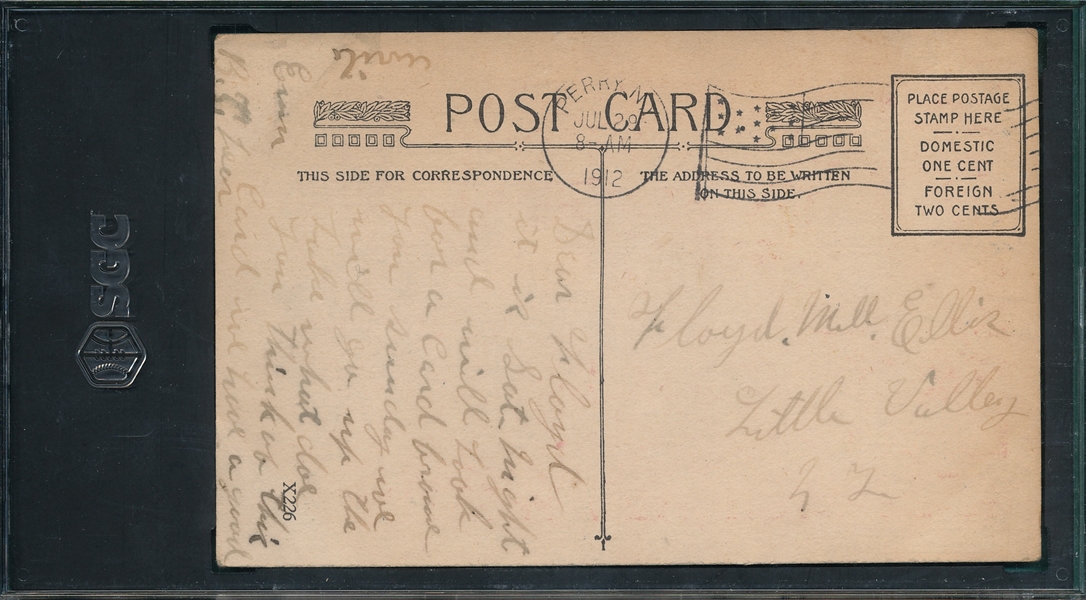 SGC
POST CARD
PERRY N.Y.
JUL 29
8-AM
1912
PLACE POSTAGE
STAMP HERE
DOMESTIC
ONE CENT
FOREIGN
TWO CENTS
THIS SIDE FOR CORRESPONDENCE
THE ADDRESS TO BE WRITTEN
ON THIS SIDE.
Dear Floyd
it is Sat. night
and will look
for a Card from
you sunday we
will go up the
Lake what doe
you think of this
Card we have a good
Ball team
Erwin
write
X226
Floyd. Ellis
Little Valley
N Y